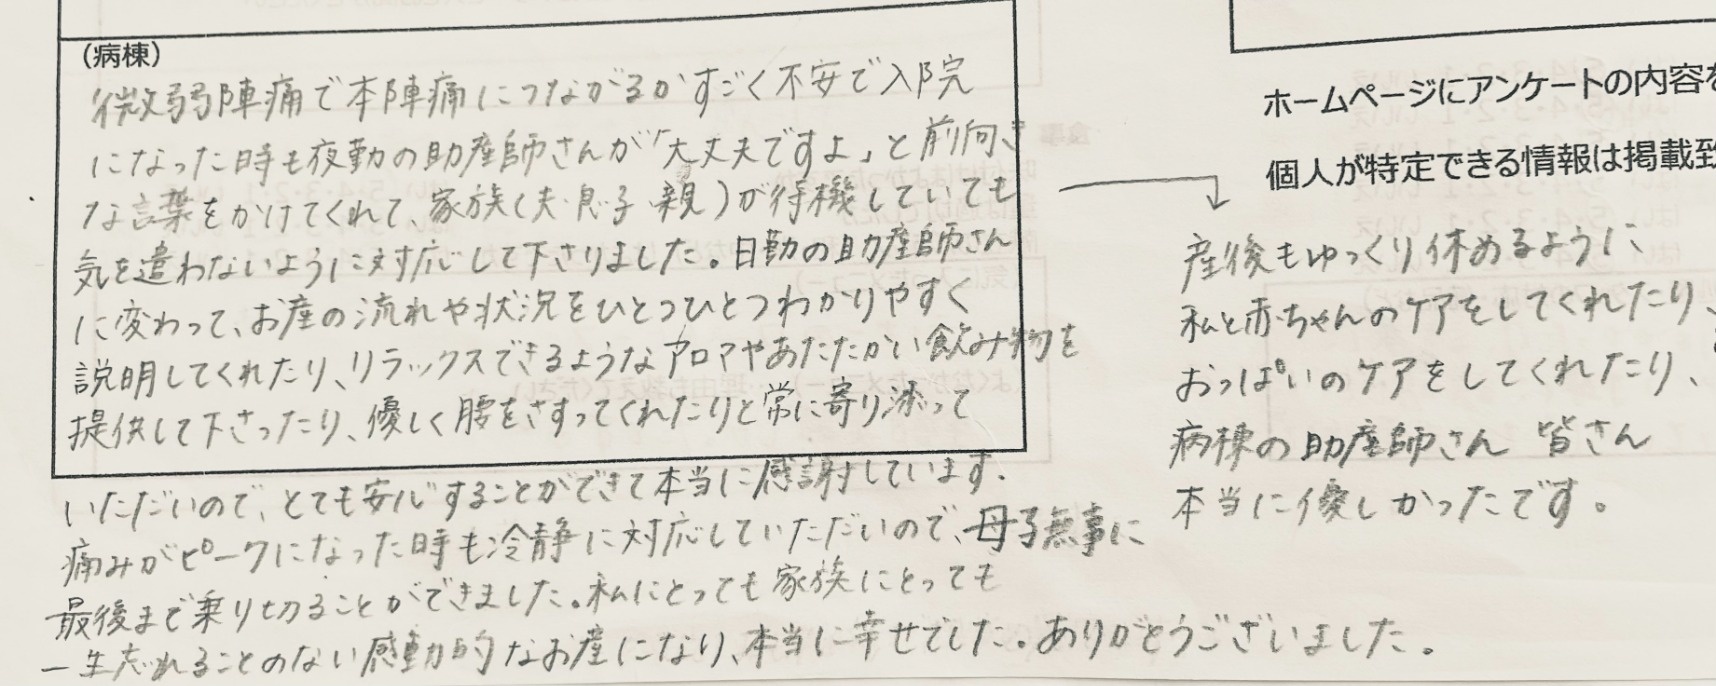 (病棟)
微弱陣痛で本陣痛につながるかすごく不安で入院
になった時も夜勤の助産師さんが「大丈夫ですよ」と前向き
な言葉をかけてくれて、家族(夫・息子・親)が待機していても
気を遣わないように対応して下さりました。日勤の助産師さん
に変わって、お産の流れや状況をひとつひとつわかりやすく
説明してくれたり、リラックスできるようなアロマやあたたかい飲み物を
提供して下さったり、優しく腰をさすってくれたりと常に寄り添って
いただいので、とても安心することができて本当に感謝しています.
痛みがピークになった時も冷静に対応していただいので、母子無事に
最後まで乗り切ることができました。私にとっても家族にとっても
一生忘れることのない感動的なお産になり、本当に幸せでした。ありがとうございました。
ホームページにアンケートの内容を
個人が特定できる情報は掲載致
産後もゆっくり休めるように
私と赤ちゃんのケアをしてくれたり、
おっぱいのケアをしてくれたり、
病棟の助産師さん 皆さん
本当に優しかったです。